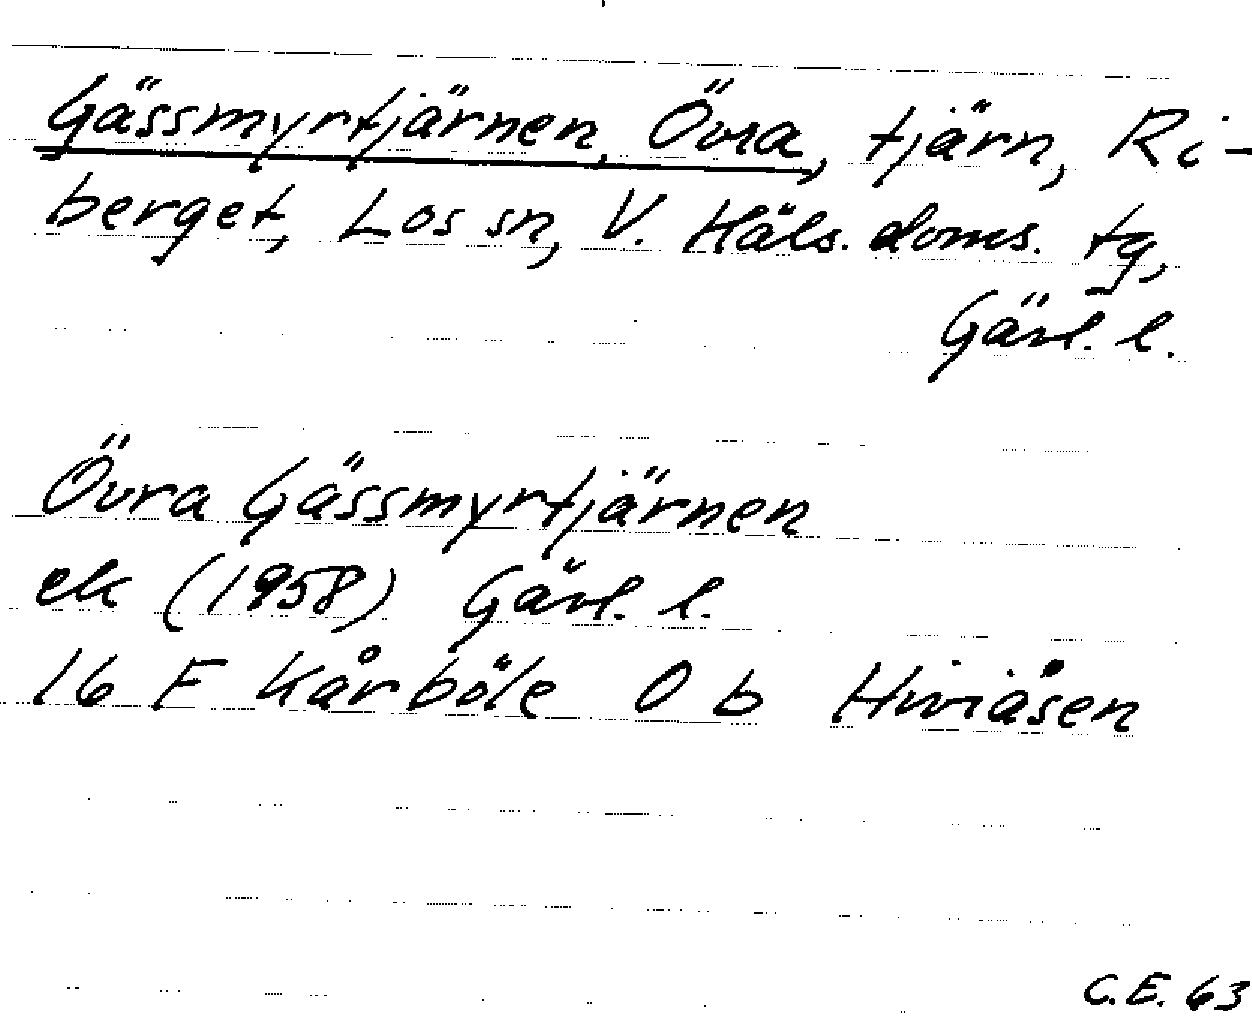 Gässmyrtjärnen, Övra, tjärn, Ri-
berget, Los sn, V. Häls. doms. tg,
Gävl. l.
Övra Gässmyrtjärnen
ek (1958) Gävl. l.
16 F Kårböle 0 b Hiviåsen
C.E. 63